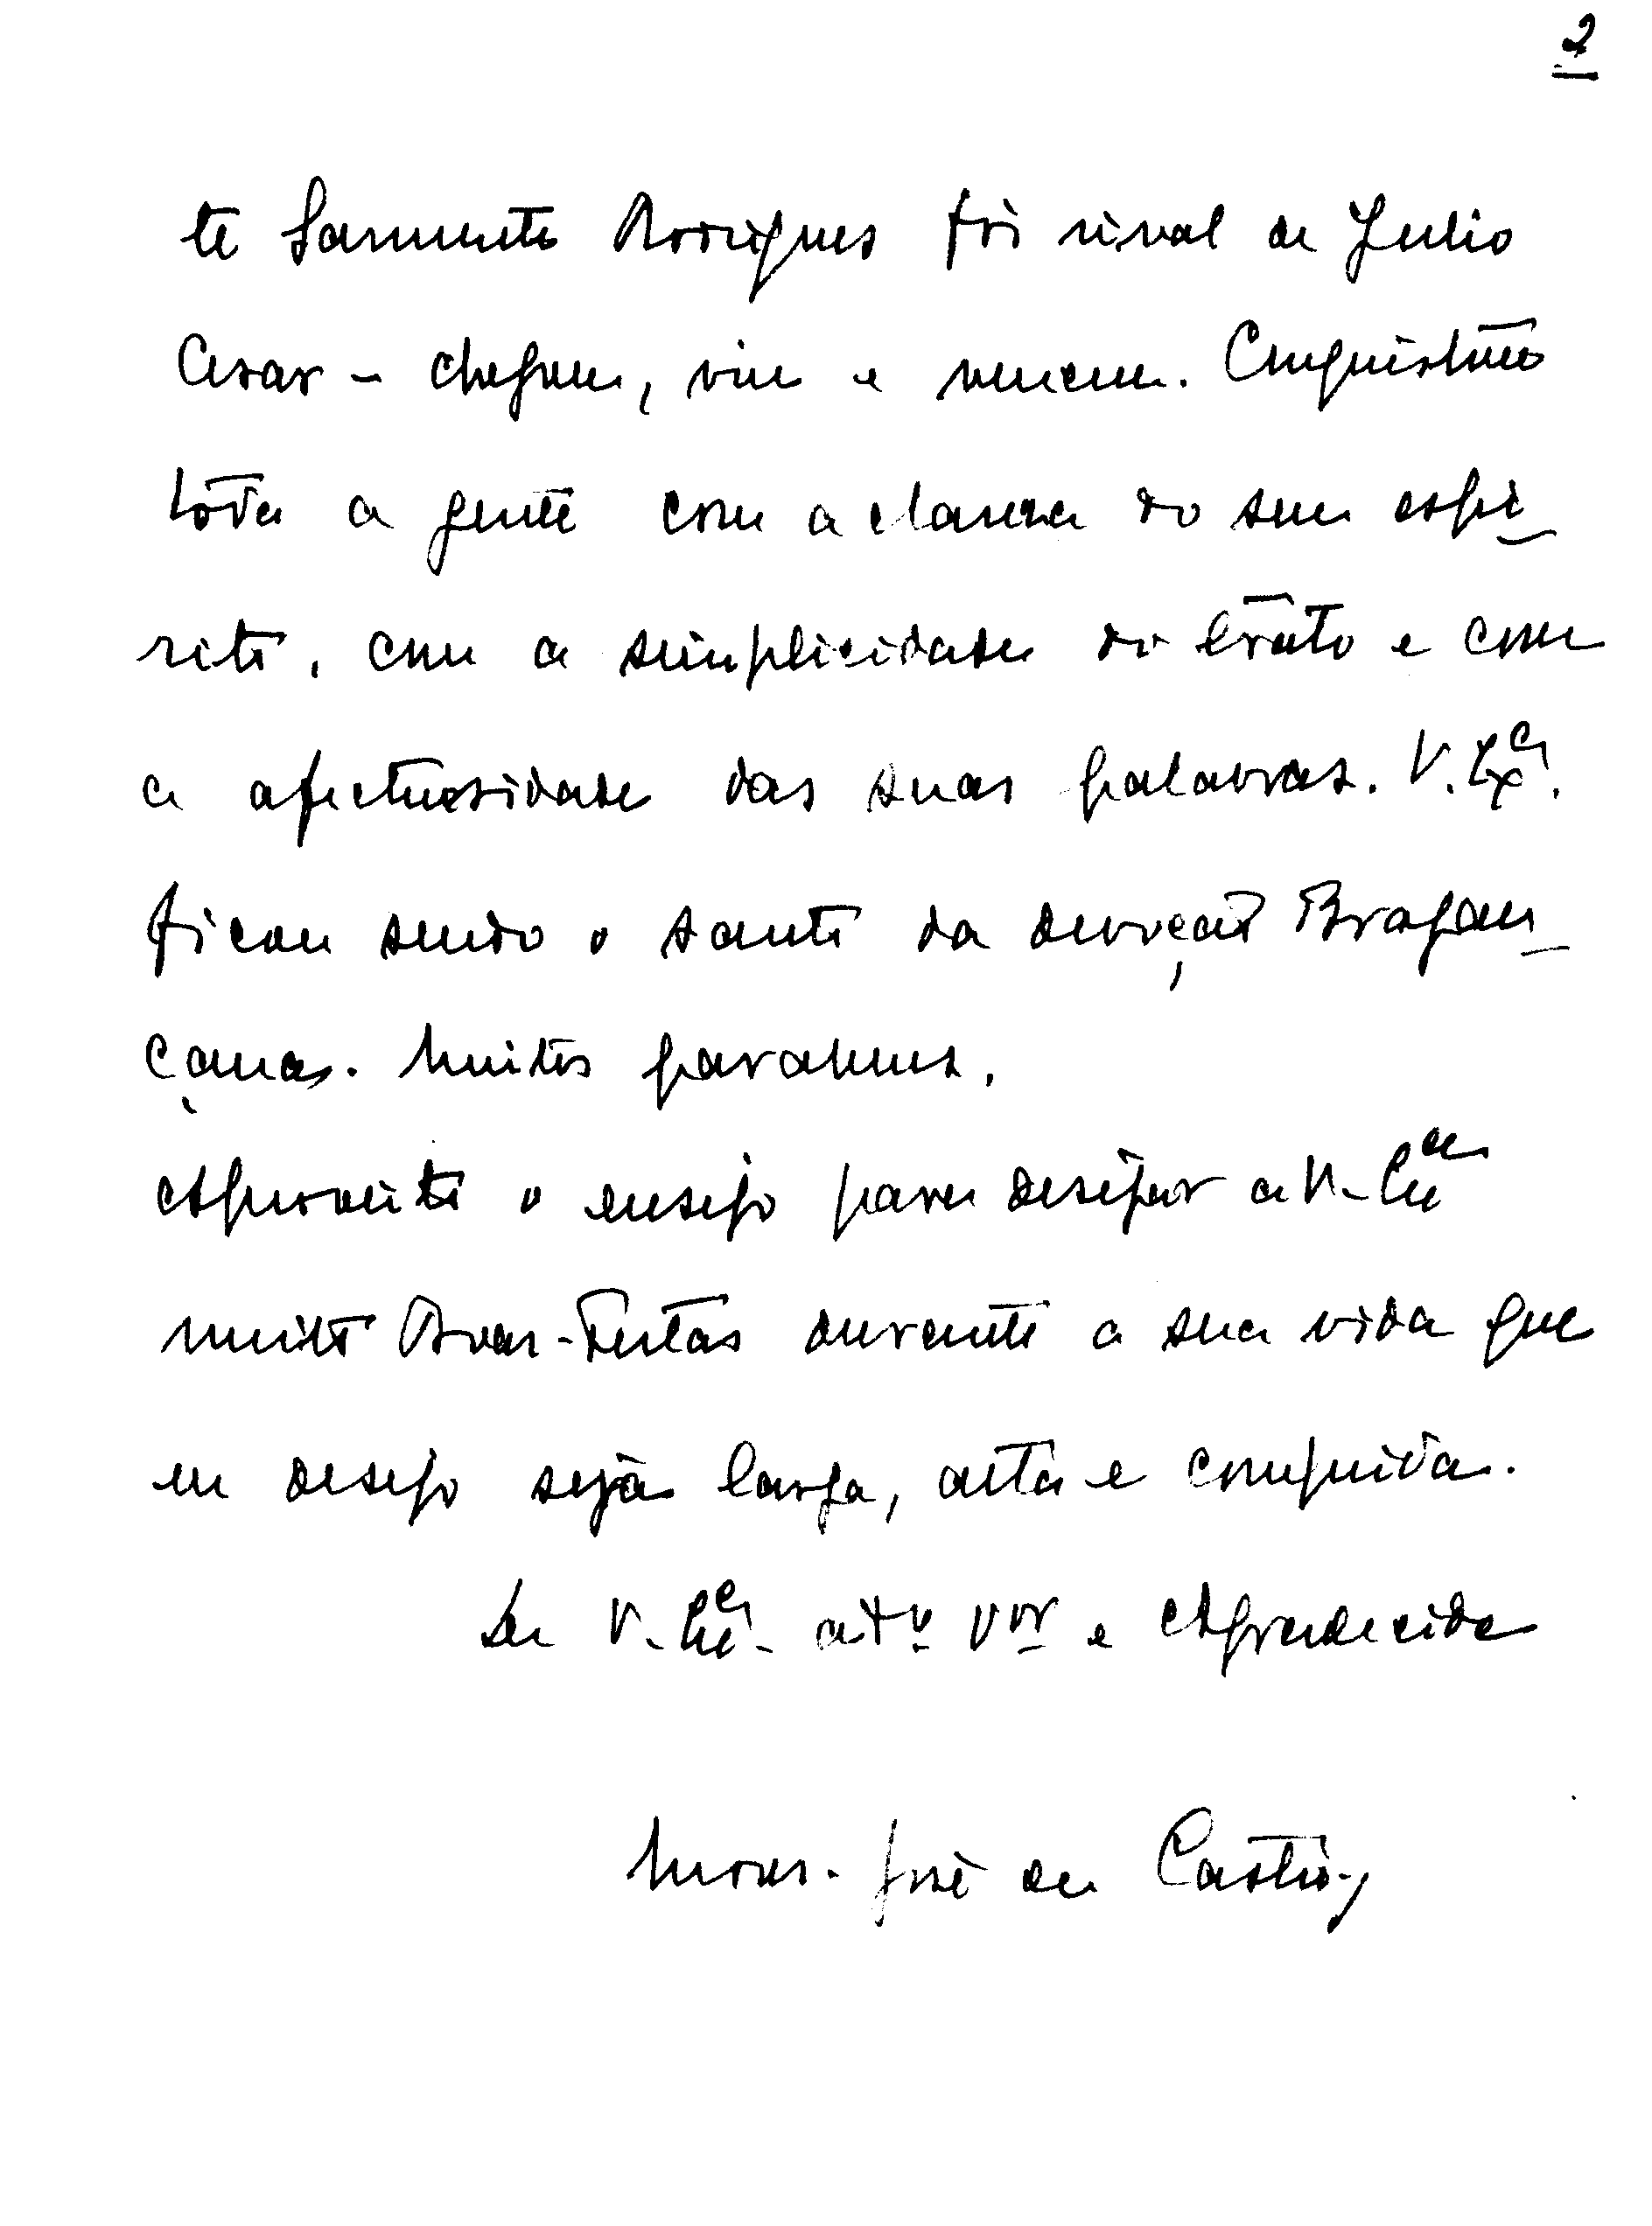 2
te Sarmento Rodrigues foi rival de Julio
Cesar - chegou, viu e venceu. Conquistou
tôda a gente com a clareza do seu espi-
rito, com a simplicidade do trato e com
a afectuosidade das suas palavras. V. Exª.
ficou sendo o santo da devoção Bragan-
çana. Muitos parabens.
Aproveito o ensejo para desejar a V. Exª
muito Boas-Festas durante a sua vida que
eu desejo seja larga, alta e comprida.
De V. Exª. atº vor e Agradecido
Mons. José de Castro